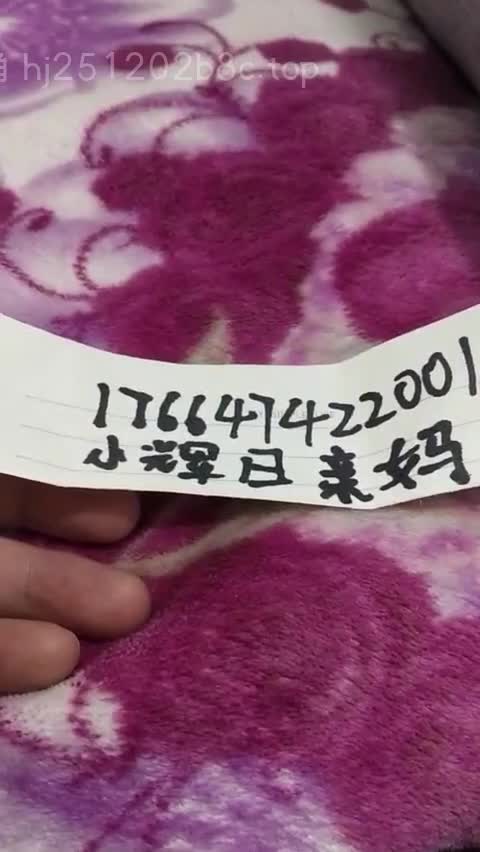 hj251202b8c.top
1766474422001
小辉日亲妈